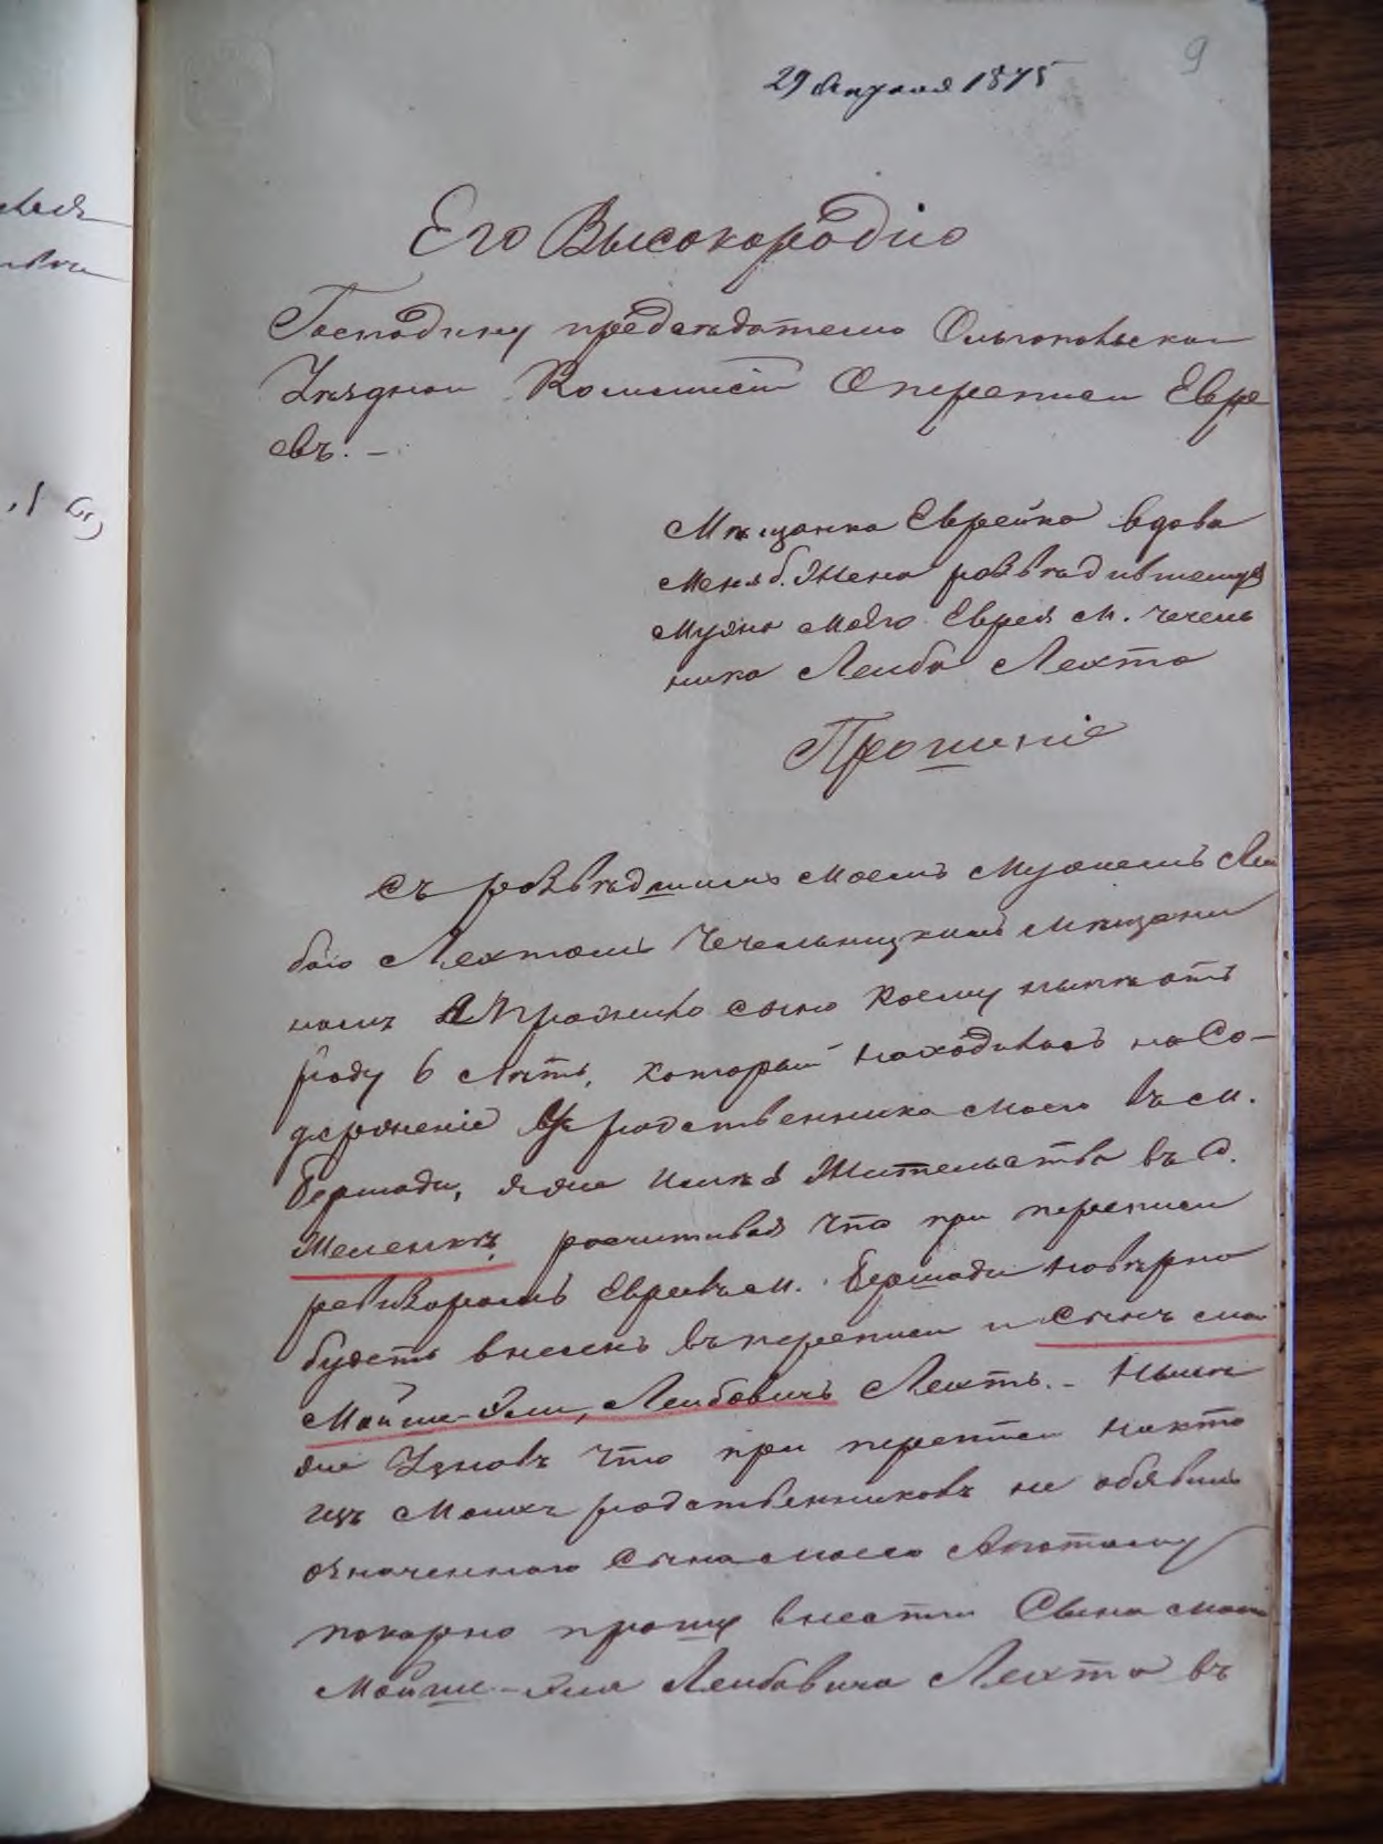 9
29 Апреля 1875
Его Высокородію
Господину председателю Ольгопольской
Уѣздной Комисіи О переписи Евре
евъ. –
Мѣщанка Еврейка вдова
жена розвѣдившемуся
мужа моего Еврея м. Чечель
ника Лейба Лехта
Прошеніе
Съ розвѣдшимъ моемъ мужемъ Лей
бою Лехтомъ Чечельницкимъ мѣщани
номъ прожито сына коему нынѣ отъ
роду 6 лѣтъ, который находилась на Со-
держеніе У родственника моего въ м.
Бершади, я же имѣя жительства въ С.
росчитивая что при переписи
ревизоромъ Евреевъ м. Бершади навѣрно
будетъ внесенъ въ переписи и сынъ мой
Мойше-Эли, Лейбовичъ Лехтъ. – Нынѣ
же Узнавъ что при переписи никто
изъ моихъ родственниковъ не объявилъ
означенного Сына моего А потому
покорно прошу внести Сына моего
Мойше-Эля Лейбовича Лехта въ